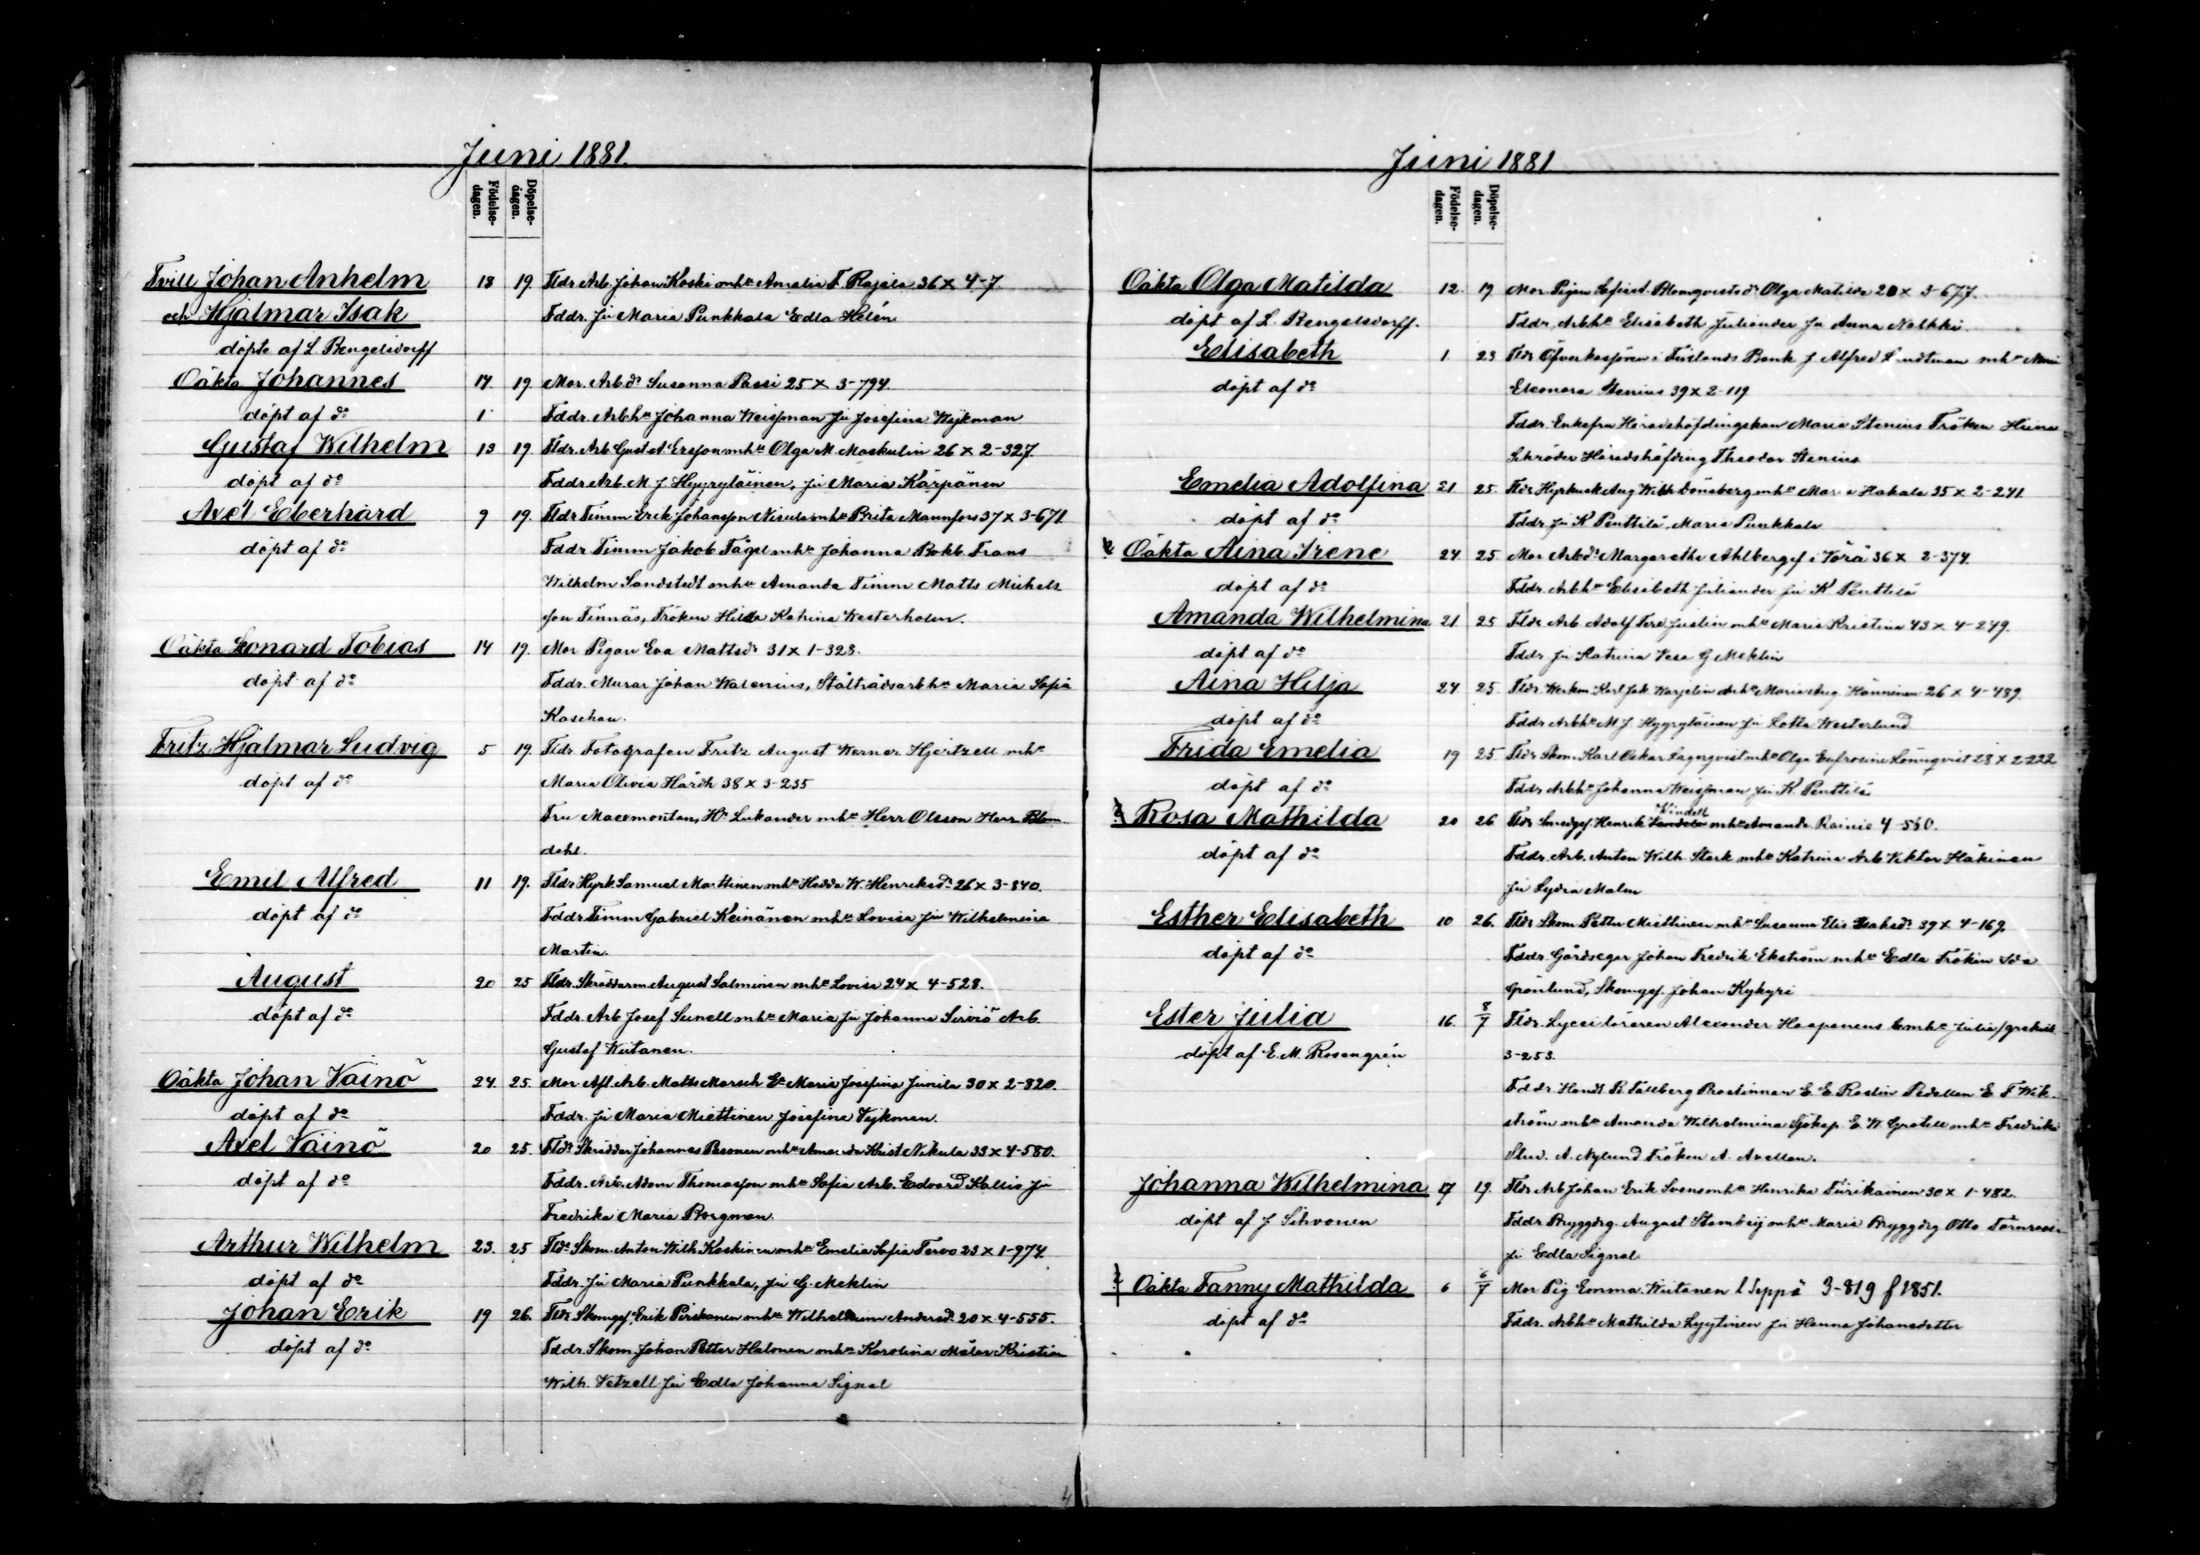 Juni 1881.
Födelse-dagen.
Döpelse-dagen.
Tvill Johan Anhelm 18 19 Fldr Arb. Johan Koski o mhu Amalia F Rajala 36 x 4-7
och Hjalmar Isak Fddr. Ju Maria Punkkala Edla Helén
döpte af L. Bengelsdorff
Oäkta Johannes 17. 19 Mor. Arbdr Susanna Passi 25 x 3-794.
döpt af do 1 Fddr. Arbhu Johanna Weissman Ju Josefina Wejkman
Gustaf Wilhelm 13 19 Fldr. Arb Gust A Ersson mhu Olga M. Maskulin 26 x 2-327.
döpt af do Fddr Arb. M. J. Hyyryläinen, Ju Maria Kärpänen
Axel Eberhard 9 19. Fldr Timm Erik Johansson Nisula mhu Brita Mannfors 37 x 3-671.
döpt af do Fddr Timm Jakob Tägel mhu Johanna Bokb. Frans
Wilhelm Sandstedt mhu Amanda Timm Matts Michels
son Finnäs, Fröken Hilda Katrina Westerholm.
Oäkta Leonard Tobias 14 19. Mor Pigan Eva Mattsdr 31 x 1-328.
döpt af do Fddr. Murar Johan Walenius, Ståltrådsarbhu Maria Sofia
Kaschau.
Fritz Hjalmar Ludvig 5 19 Fldr Fotografen Fritz August Werner Hjertzell mhu
döpt af do Maria Olivia Hårdh 38 x 3-235
Fru Macemontan, Hr Lukander mhu Herr Olsson Herr Blom
dahl.
Emil Alfred 11 19. Fldr Hyrk. Samuel Marttinen mhu Hedda W. Henriksdr 26 x 3-840.
döpt af do Fddr Timm Gabriel Keinänen mhu Lovisa Ju Wilhelmina
Martin.
August 20 25 Fldr. Skräddarm. August Salminen mhu Lovisa 24 x 4-528.
döpt af do Fddr. Arb Josef Sunell mhu Maria Ju Johanna Serviö Arb.
Gustaf Wiitanen.
Oäkta Johan Väinö 24. 25. Mor Afl. Arb. Matts Marsch Ea Maria Josefina Junila 30 x 2-820.
döpt af do Fddr. Ju Maria Miettinen Josefina Vejkman.
Axel Väinö 20 25. Fldr Skräddar Johannes Pesonen mhu Amanda Krist Nikula 33 x 4-580.
döpt af do Fddr. Arb. Adam Thomasson mhu Sofia Arb. Edvard Kallio Ju
Fredrika Maria Borgman.
Arthur Wilhelm 23. 25 Fldr Skom. Anton Wilh Koskinen mhu Emelia Sofia Tervo 23 x 1-974.
döpt af do Fddr. Ju Maria Punkkala, Ju G. Meklin
Johan Erik 19 26. Fldr Skomges. Erik Piiskanen mhu Wilhelmina Andersdr 20 x 4-555.
döpt af do Fddr. Skom. Johan Petter Halonen mhu Karolina Målar Kristian
Wilh. Vetzell Ju Edla Johanna Signal
Juni 1881
Födelse-dagen.
Döpelse-dagen.
Oäkta Olga Matilda 12. 19 Mor Pigan Blomqvists dr Olga Matilda 20 x 3-677.
döpt af L. Bengelsdorff. Fddr. Arbhu Elisabeth Juliander Ju Anna Nalkki.
Elisabeth 1. 23 Fldr Öfverkassören i Finlands Bank J Alfred Lindtman mhu Maria
döpt af do Eleonora Stenius 39 x 2-119
Fddr. Enkefru Häradshöfdingskan Maria Stenius Fröken Heina
Schröder Häradshöfding Theodor Stenius
Emelia Adolfina 21 25. Fldr Hyrkusk Aug Wilh Dönsberg mhu Maria Hakala 35 x 2-241.
döpt af do Fddr. Ju K Penttilä, Maria Punkkala
Oäkta Aina Irene 24 25. Mor Arbdr Margaretha Ahlberg f i Vörå 36 x 2-374.
döpt af do Fddr. Arbhu Elisabeth Juliander Ju K Penttilä
Amanda Wilhelmina 21. 25 Fldr Arb Adolf Ferd Juslin mhu Maria Kristina 43 x 4-249.
döpt af do Fddr Ju Katrina Vesa G Meklin
Aina Hilja 24 25. Fldr. Werkm Karl Jak. Warjelin mhu Maria Aug. Hänninen 26 x 4-489.
döpt af do Fddr Arbhu M J Hyyryläinen Ju Lotta Westerlund
Frida Emelia 19 25. Fldr Skom. Karl Oskar Lagerqvist mhu Olga Eufrosine Lönnqvist 28 x 2-222
döpt af do Fddr Arbhu Johanna Weissman Ju K. Penttilä
Vindell
Rosa Mathilda 20 26 Fldr Smedges Henrik mhu Amanda Rainio 4-560.
döpt af do Fddr. Arb. Anton Wilh. Stark mhu Katrina Arb Viktor Häkinen
Ju Lydia Malm
Esther Elisabeth 10 26. Fldr Skom Petter Miettinen mhu Susanna Elis Isaksdr 39 x 4-169.
döpt af do Fddr. Gårdseger Johan Fredrik Ekström mhu Edla Fröken Ida
Grönlund, Skomges. Johan Kykyri
Ester Julia 16. 8/7 Fldr. Lyceiläraren Alexander Haapanens mhu Julia/grekisk
döpt af E. M. Rosengrén 3-253.
Fddr. Handl R Tallberg Prostinnan E. E. Roslin Pedellen E F Wik-
ström mhu Amanda Wilhelmina Sjökap. E. W. Gratell mhu Fredrika
Stud. A. Nylund Fröken A. Avellan.
Johanna Wilhelmina 17 19. Fldr Arb Johan Erik Svens mhu Henrika Tiirikainen 30 x 1-482.
döpt af J Sihvonen Fddr Bryggdrg. August Stambeij mhu Maria Bryggdrg Otto Törnroos.
Ju Edla Signal.
Oäkta Fanny Mathilda 6 6/7 Mor Pig Emma Wiitanen l Seppä 3-819 f 1851.
döpt af do Fddr. Arbhu Mathilda Lyytinen Ju Hanna Johansdotter